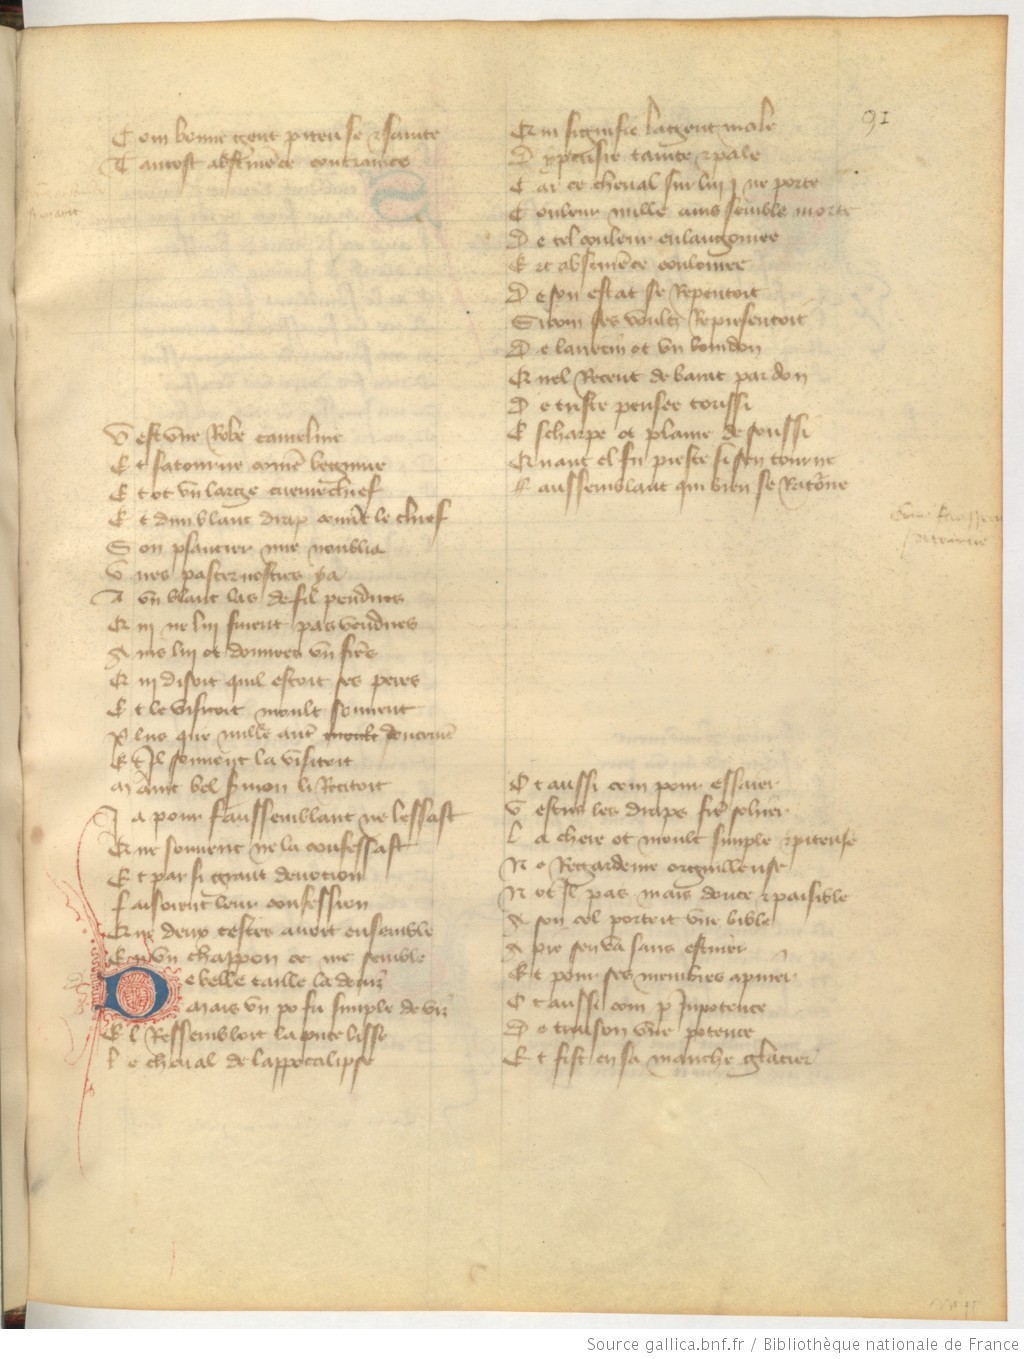 91
Com bonne gent piteuse et sainte
Tantost abstinence contrainte
Vest une Robe cameline
Et satourne comme beguine
Et ot un large cuevrechief
Et dun blanc drap couvert le chief
Son psautier mie noublia
Unes pasternostres ya
A un blanc las de fil pendues
Qui ne lui furent pas vendues
Ains lui ot donnees un freres
Qui disoit quil estoit ses peres
Et le visitoit moult souvent
Plus que nulle autre moult doucement
Et Il souvent la visitoit
Maint bel sermon li Recitoit
Ja pour faussemblant ne lessast
Que souvent ne la confessast
Et par si grant devotion
Faisoient leur confession
Que deux testes avoit ensemble
En un chappon ce me semble
De belle taille la devis
Mais un po fu simple de vis
El Ressembloit la pute lisse
Le cheval de lappocalipse
Qui signifie la gent male
Dypocrisie tainte et pale
Car ce cheval sur lui ne porte
Couleur nulle ains semble morte
De tel couleur enlangouree
Ert abstinence coulouree
De son estat se Repentoit
Si com ses voults Representoit
De larrecin ot un bourdon
Quel Recut de barat par don
De triste pensee roussi
Escharpe ot plaine de soussi
Quant el fu preste si sen tourne
Faussemblant qui bien se Ratourne
Et aussi com pour essaier
Vestus les draps frere sohier
La chere ot moult simple et piteuse
Ne Regardeure orguilleuse
Not Il pas mais douce et paisible
A son col portoit une bible
A pie sen va sans escuier
Et pour ses membres apuier
Et aussi com par Inpotence
De traison une potence
Et fist en sa manche glacier
Source gallica.bnf.fr / Bibliothèque nationale de France